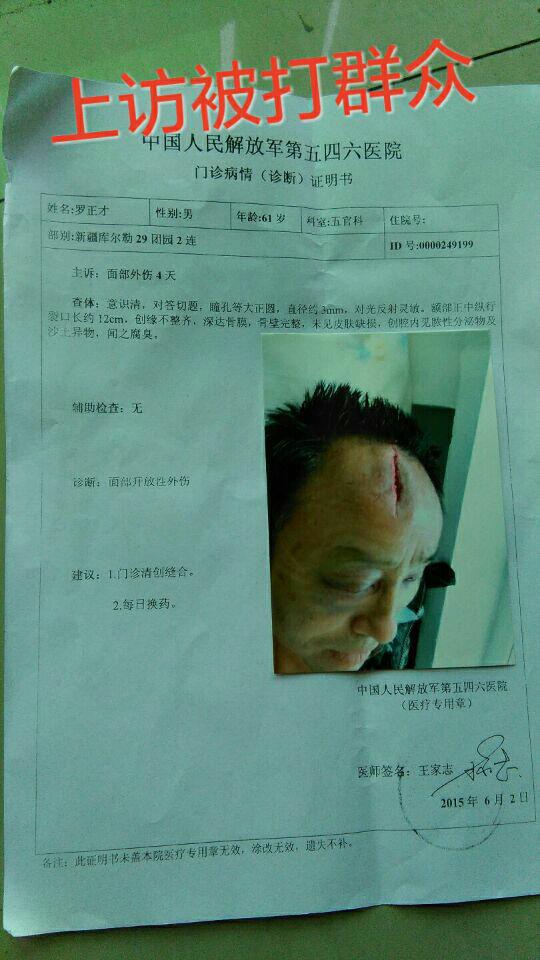 上访被打群众
中国人民解放军第五四六医院
门诊病情（诊断）证明书
姓名:罗正才 性别:男 年龄:61 岁 科室:五官科 住院号:
部别:新疆库尔勒 29 团园 2 连 ID 号:0000249199
主诉：面部外伤 4 天
查体：意识清，对答切题，瞳孔等大正圆，直径约 3mm，对光反射灵敏。额部正中纵行
裂口长约 12cm，创缘不整齐，深达骨膜，骨壁完整，未见皮肤缺损，创腔内见脓性分泌物及
沙土异物，闻之腐臭。
辅助检查：无
诊断：面部开放性外伤
建议：1.门诊清创缝合。
2.每日换药。
中国人民解放军第五四六医院
（医疗专用章）
医师签名：王家志
2015 年 6 月 2 日
备注：此证明书未盖本院医疗专用章无效，涂改无效，遗失不补。